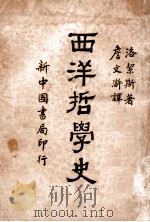 洛挈斯著
詹文滸譯
西洋哲學史
新中國書局印行